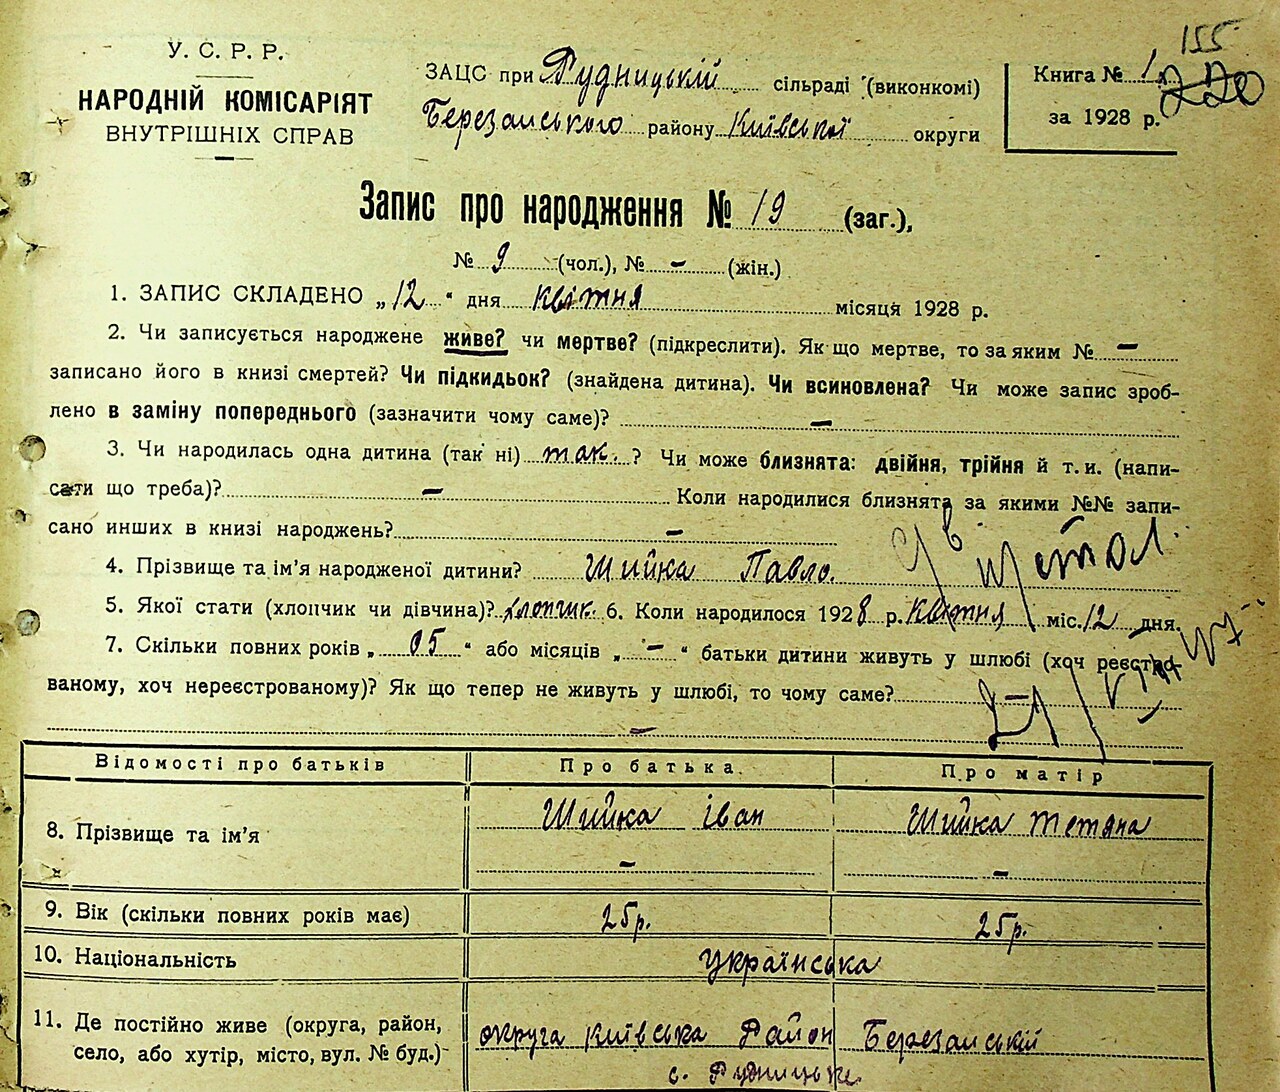 155
У. С. Р. Р.
НАРОДНІЙ КОМІСАРІЯТ
ВНУТРІШНІХ СПРАВ
ЗАЦС при Рудницькій сільраді (виконкомі)
Березанського району Київської округи
Книга № 1 220
за 1928 р.
Запис про народження № 19 (заг.),
№ 9 (чол.), № - (жін.)
1. ЗАПИС СКЛАДЕНО „12" дня квітня місяця 1928 р.
2. Чи записується народжене живе? чи мертве? (підкреслити). Як що мертве, то за яким № -
записано його в книзі смертей? Чи підкидьок? (знайдена дитина). Чи всиновлена? Чи може запис зроб-
лено в заміну попереднього (зазначити чому саме)? -
3. Чи народилась одна дитина (так ні) так. ? Чи може близнята: двійня, трійня й т. и. (напи-
сати що треба)? - Коли народилися близнята за якими №№ запи-
сано инших в книзі народжень? -
4. Прізвище та ім'я народженої дитини? Шийка Павло.
5. Якої стати (хлопчик чи дівчина)? хлопчик. 6. Коли народилося 1928 р. квітня міс. 12 дня.
7. Скільки повних років „05" або місяців „-" батьки дитини живуть у шлюбі (хоч реєстро-
ваному, хоч нереєстрованому)? Як що тепер не живуть у шлюбі, то чому саме? -
-
Відомості про батьків Про батька Про матір
8. Прізвище та ім'я Шийка Іван Шийка Тетяна
- -
9. Вік (скільки повних років має) 25р. 25р.
10. Національність українська
11. Де постійно живе (округа, район, село, або хутір, місто, вул. № буд.) округа Київська Район Березанській
с. Рудницьке